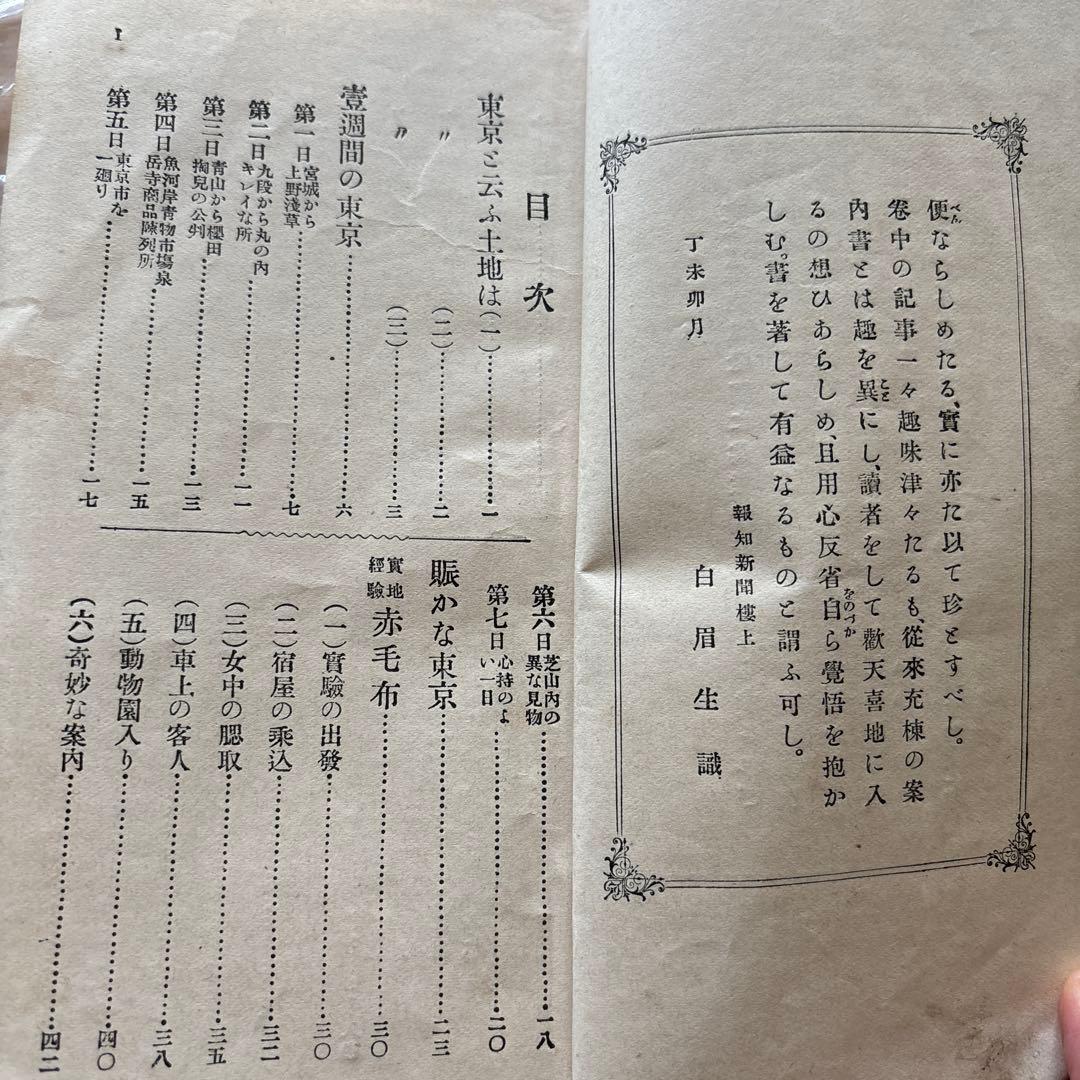 便ならしめたる、實に亦た以て珍とすべし。
卷中の記事一々趣味津々たるも、從來充棟の案
內書とは趣を異にし、讀者をして歡天喜地に入
るの想ひあらしめ、且用心反省自ら覺悟を抱か
しむ。書を著して有益なるものと謂ふ可し。
丁未卯月
報知新聞樓上
白眉生識
目次
東京と云ふ土地は(一)……一
〃(二)……二
〃(三)……三
壹週間の東京……六
第一日 宮城から上野淺草……七
第二日 九段から丸の內キレイな所……一一
第三日 靑山から櫻田掏兒の公判……一三
第四日 魚河岸靑物市場泉岳寺商品陳列所……一五
第五日 東京市を一廻り……一七
第六日 芝山內の異な見物……一八
第七日 心持のよい一日……二〇
賑かな東京……二三
實地經驗 赤毛布……三〇
(一)實驗の出發……三〇
(二)宿屋の乘込……三二
(三)女中の腮取……三五
(四)車上の客人……三八
(五)動物園入り……四〇
(六)奇妙な案內……四二
1